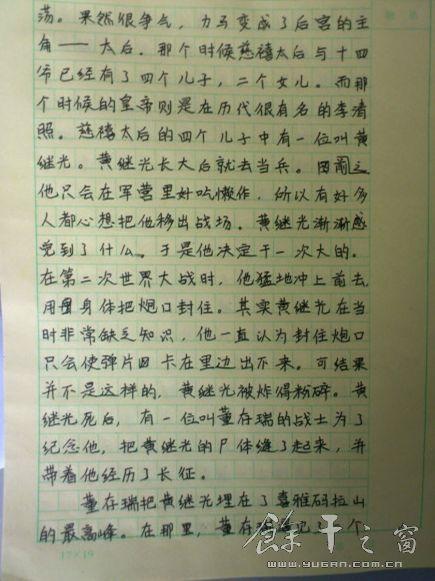 荡。果然很争气，力马变成了后宫的主
角——太后。那个时候慈禧太后与十四
爷已经有了四个儿子，二个女儿。而那
个时候的皇帝则是在历代很有名的李清
照。慈禧太后的四个儿子中有一位叫黄
继光。黄继光长大后就去当兵。因而
他只会在军营里好吃懒作，所以有好多
人都心想把他移出战场。黄继光渐渐感
觉到了什么。于是他决定干一次大的。
在第二次世界大战时，他猛地冲上前去，
用身体把炮口封住。其实黄继光在当
时非常缺乏知识，他一直认为封住炮口
只会使弹片卡在里边出不来。可结果
并不是这样的，黄继光被炸得粉碎。黄
继光死后，有一位叫董存瑞的战士为了
纪念他，把黄继光的尸体缝了起来，并
带着他经历了长征。
董存瑞把黄继光埋在了喜雅码拉山
的最高峰。在那里，董存瑞 个
17×19
餘干之窗
www.yugan.com.cn